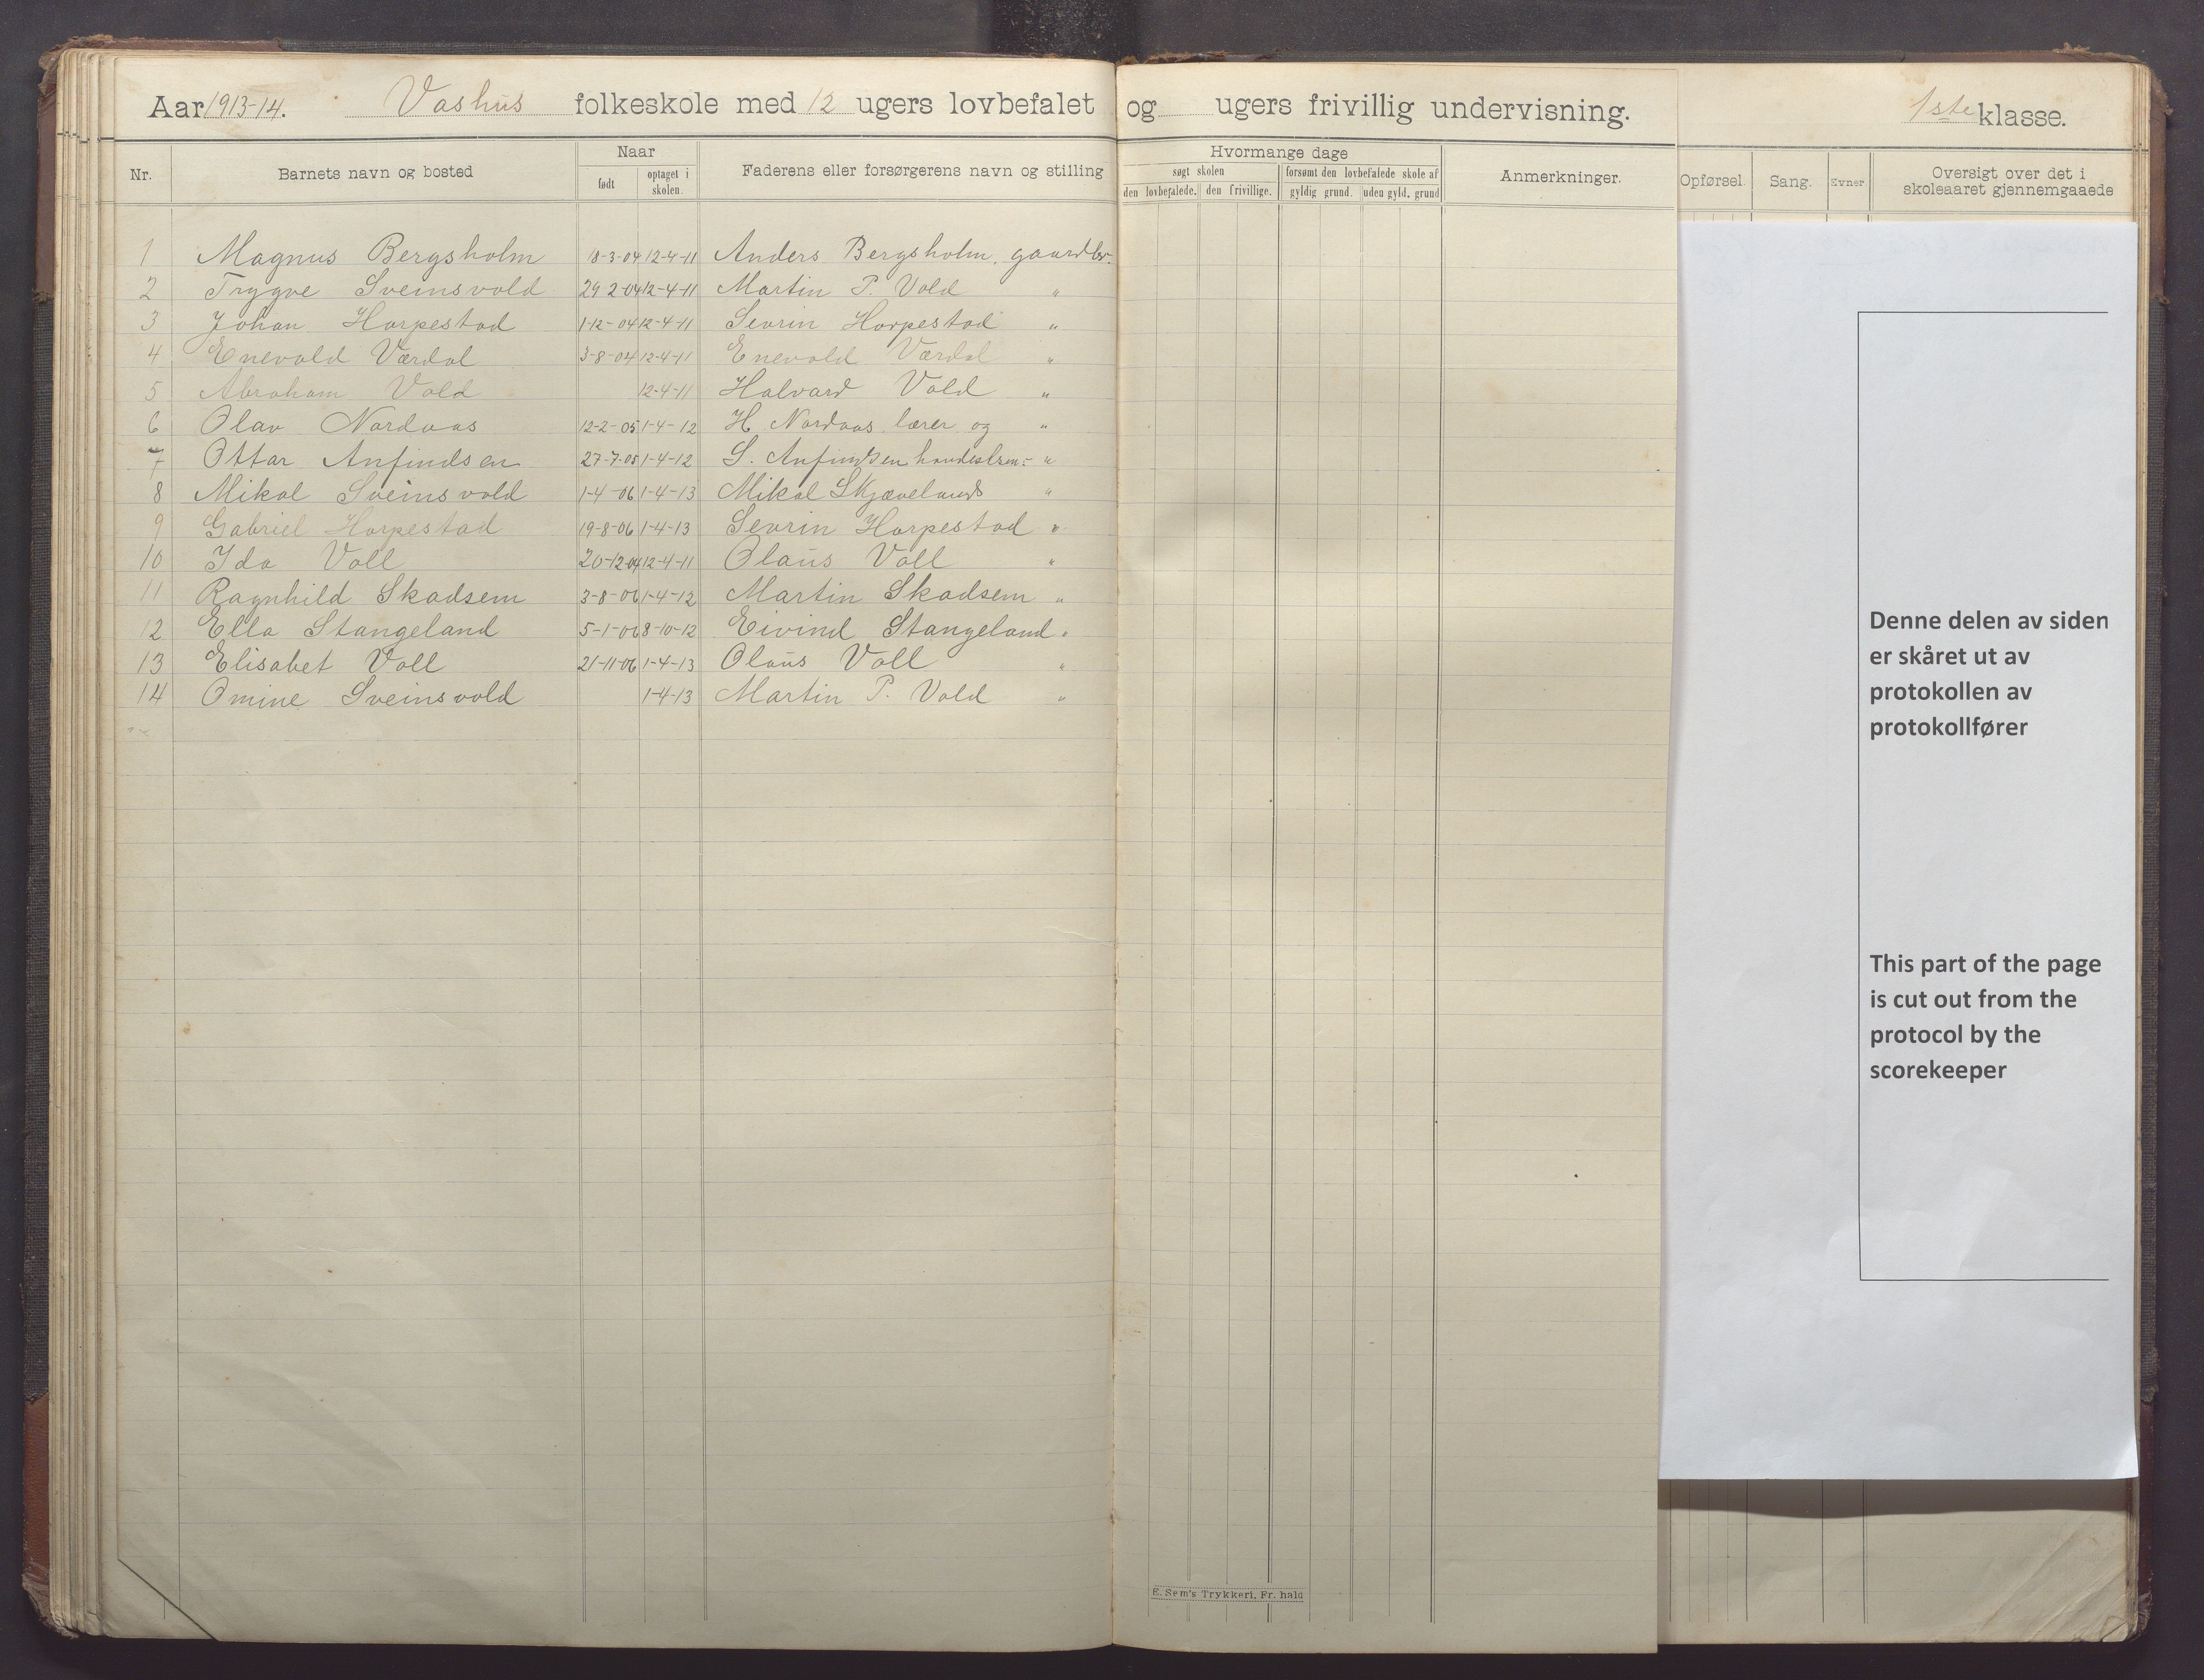 Aar 1913-14. Vashus folkeskole med 12 ugers lovbefalet og ugers frivillig undervisning. 1ste klasse.
Nr. Barnets navn og bosted Naar Faderens eller forsørgerens navn og stilling Hvormange dage Anmerkninger. Opførsel. Sang. Evner Oversigt over det i skoleaaret gjennemgaaede
født optaget i skolen. søgt skolen forsømt den lovbefalede skole af
den lovbefalede. den frivillige. gyldig grund. uden gyld. grund
1 Magnus Bergsholm 18-3-04 12-4-11 Anders Bergsholm, gaardbr.
2 Trygve Sveinsvold 29 2-04 12-4-11 Martin P. Vold "
3 Johan Harpestad 1-12-04 12-4-11 Sevrin Harpestad "
4 Enevald Værdal 3-8-04 12-4-11 Enevald Værdal "
5 Abraham Vold 12-4-11 Halvard Vold "
6 Olav Nordaas 12-2-05 1-4-12 H. Nordaas lærer og "
7 Ottar Anfindsen 27-7-05 1-4-12 S. Anfindsen "
8 Mikal Sveinsvold 1-4-06 1-4-13 Mikal Skjævelands "
9 Gabriel Harpestad 19-8-06 1-4-13 Sevrin Harpestad "
10 Ida Voll 20-12-04 12-4-11 Olaus Voll "
11 Ragnhild Skadsem 3-8-06 1-4-12 Martin Skadsem "
12 Ella Stangeland 5-1-06 8-10-12 Eivind Stangeland "
13 Elisabet Voll 21-11-06 1-4-13 Olaus Voll "
14 Omine Sveinsvold 1-4-13 Martin P. Vold "
Denne delen av siden
er skåret ut av
protokollen av
protokollfører
This part of the page
is cut out from the
protocol by the
scorekeeper
E. Sem's Trykkeri, Fr. hald